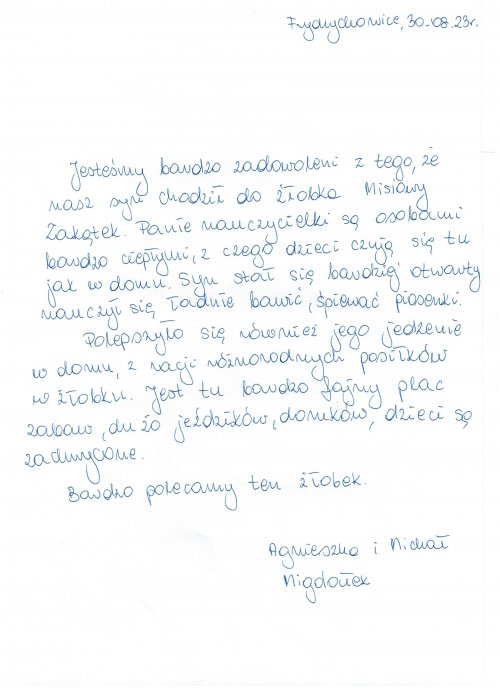 Frydrychowice, 30-08.23r.
Jesteśmy bardzo zadowoleni z tego, że
nasz syn chodził do żłobka Misiowy
Zakątek. Panie nauczycielki są osobami
bardzo ciepłymi, z czego dzieci czują się tu
jak w domu. Syn stał się bardziej otwarty
nauczył się ładnie bawić, śpiewać piosenki.
Polepszyło się również jego jedzenie
w domu, z racji różnorodnych posiłków
w żłobku. Jest tu bardzo fajny plac
zabaw, dużo jeździków, domków, dzieci są
zachwycone.
Bardzo polecamy ten żłobek.
Agnieszka i Michał
Migdałek